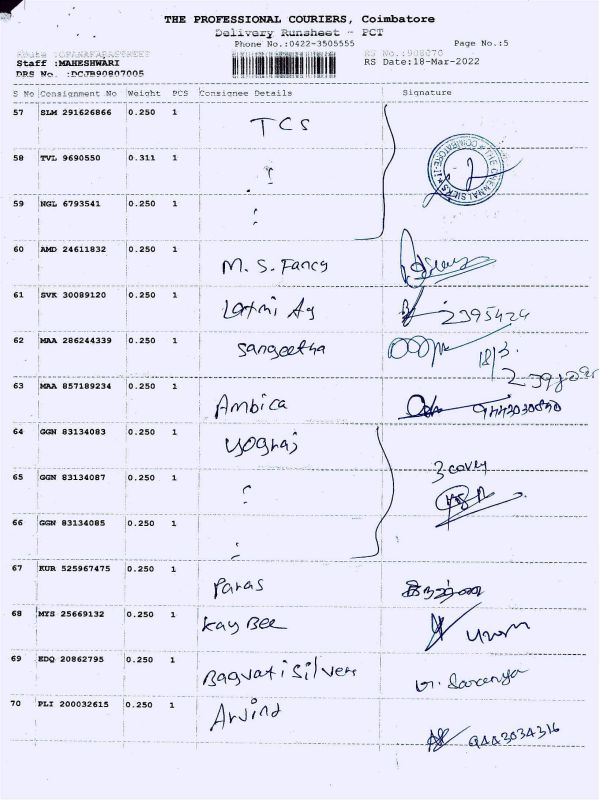 THE PROFESSIONAL COURIERS, Coimbatore
Delivery Runsheet - PCT
Phone No.:0422-3505555 Page No.:5
RS No.:908070
Staff :MAHESHWARI RS Date:18-Mar-2022
DRS No. :DCJB90807005
S No Consignment No Weight PCS Consignee Details Signature
57 SLM 291626866 0.250 1 TCS
58 TVL 9690550 0.311 1 "
59 NGL 6793541 0.250 1 "
60 AMD 24611832 0.250 1 M. S. Fancy
61 SVK 30089120 0.250 1 Laxmi Ag 2395424
62 MAA 286244339 0.250 1 Sangeetha 18/3
63 MAA 857189234 0.250 1 Ambica
64 GGN 83134083 0.250 1 yograj
65 GGN 83134087 0.250 1 " 3 cover
66 GGN 83134085 0.250 1 "
67 KUR 525967475 0.250 1 Paras
68 MYS 25669132 0.250 1 Kay Bee
69 EDQ 20862795 0.250 1 Bagvati Silver M. Saranya
70 PLI 200032615 0.250 1 Arvind 9443034316